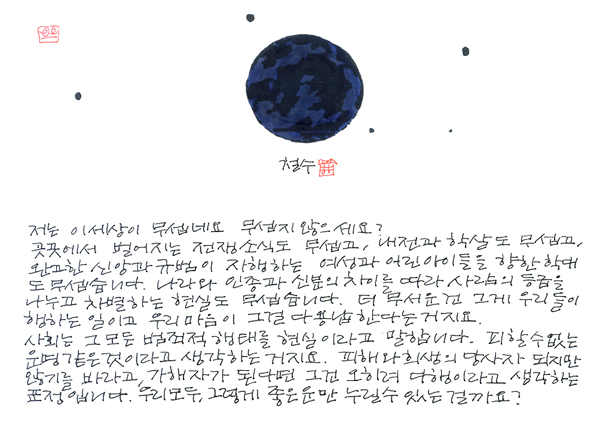 철수
저는 이 세상이 무섭네요 무섭지 않으세요?
곳곳에서 벌어지는 전쟁소식도 무섭고, 내전과 학살도 무섭고,
완고한 신앙과 규범이 자행하는 여성과 어린아이들을 향한 학대
도 무섭습니다. 나라와 인종과 신분의 차이를 따라 사람의 등급을
나누고 차별하는 현실도 무섭습니다. 더 무서운건 그게 우리들이
행하는 일이고 우리 마음이 그걸 다 용납한다는 거지요.
사회는 그 모든 범죄적 행태를 현실이라고 말합니다. 피할 수 없는
운명같은 것이라고 생각하는 거지요. 피해와 희생의 당사자 되지만
않기를 바라고, 가해자가 된다면 그건 오히려 다행이라고 생각하는
표정입니다. 우리 모두, 그렇게 좋은 운만 누릴 수 있는 걸까요?